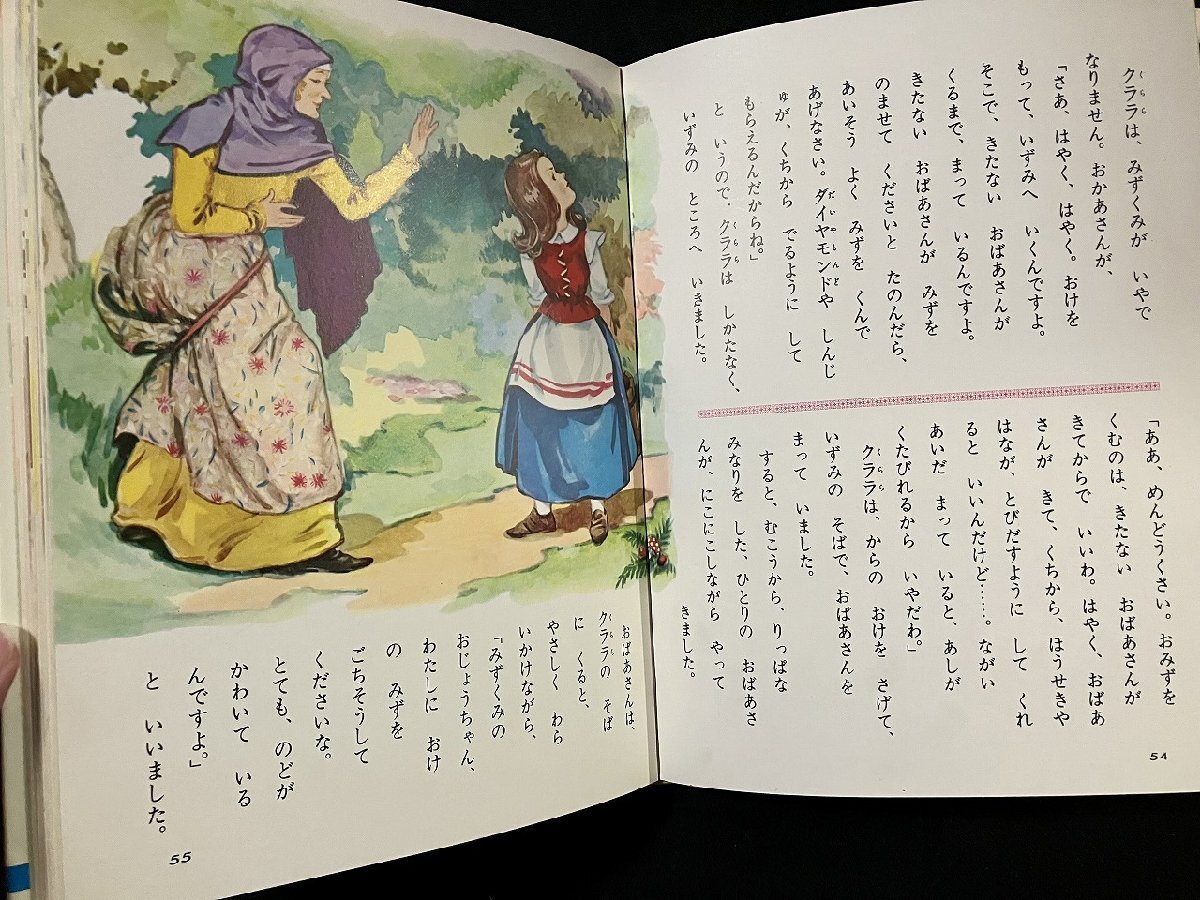 クララは、みずくみが　いやで
なりません。おかあさんが、
「さあ、はやく、はやく。おけを
もって、いずみへ　いくんですよ。
そこで、きたない　おばあさんが
くるまで、まって　いるんですよ。
きたない　おばあさんが　みずを
のませて　くださいと　たのんだら、
あいそう　よく　みずを　くんで
あげなさい。ダイヤモンドや　しんじ
ゅが、くちから　でるように　して
もらえるんだからね。」
と　いうので、クララは　しかたなく、
いずみの　ところへ　いきました。
「ああ、めんどうくさい。おみずを
くむのは、きたない　おばあさんが
きてからで　いいわ。はやく、おばあ
さんが　きて、くちから、ほうせきや
はなが、とびだすように　して　くれ
ると　いいんだけど……。ながい
あいだ　まって　いると、あしが
くたびれるから　いやだわ。」
クララは、からの　おけを　さげて、
いずみの　そばで、おばあさんを
まって　いました。
すると、むこうから、りっぱな
みなりを　した、ひとりの　おばあさ
んが、にこにこしながら　やって
きました。
54
おばあさんは、
クララの　そば
に　くると、
やさしく　わら
いかけながら、
「みずくみの
おじょうちゃん、
わたしに　おけ
の　みずを
ごちそうして
くださいな。
とても、のどが
かわいて　いる
んですよ。」
と　いいました。
55